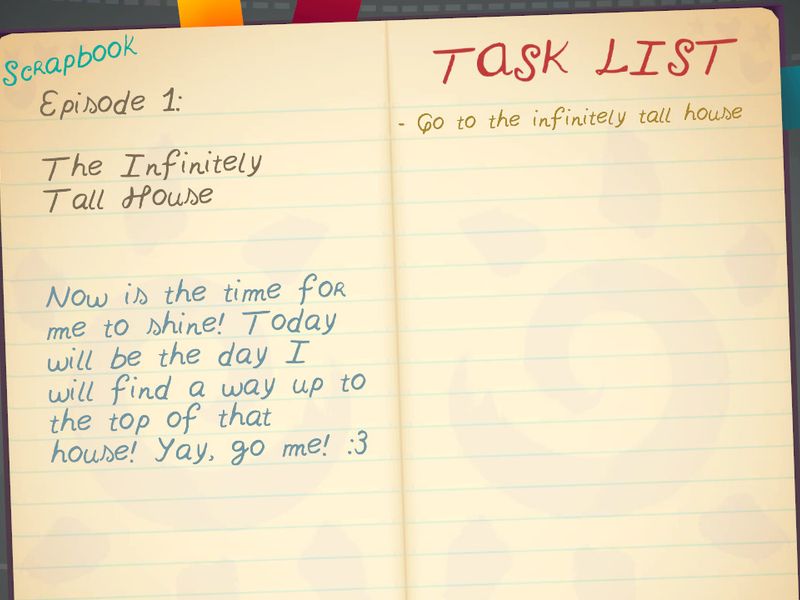 Scrapbook
Episode 1:
The Infinitely
Tall House
Now is the time for
me to shine! Today
will be the day I
will find a way up to
the top of that
house! Yay, go me! :3
TASK LIST
- Go to the infinitely tall house